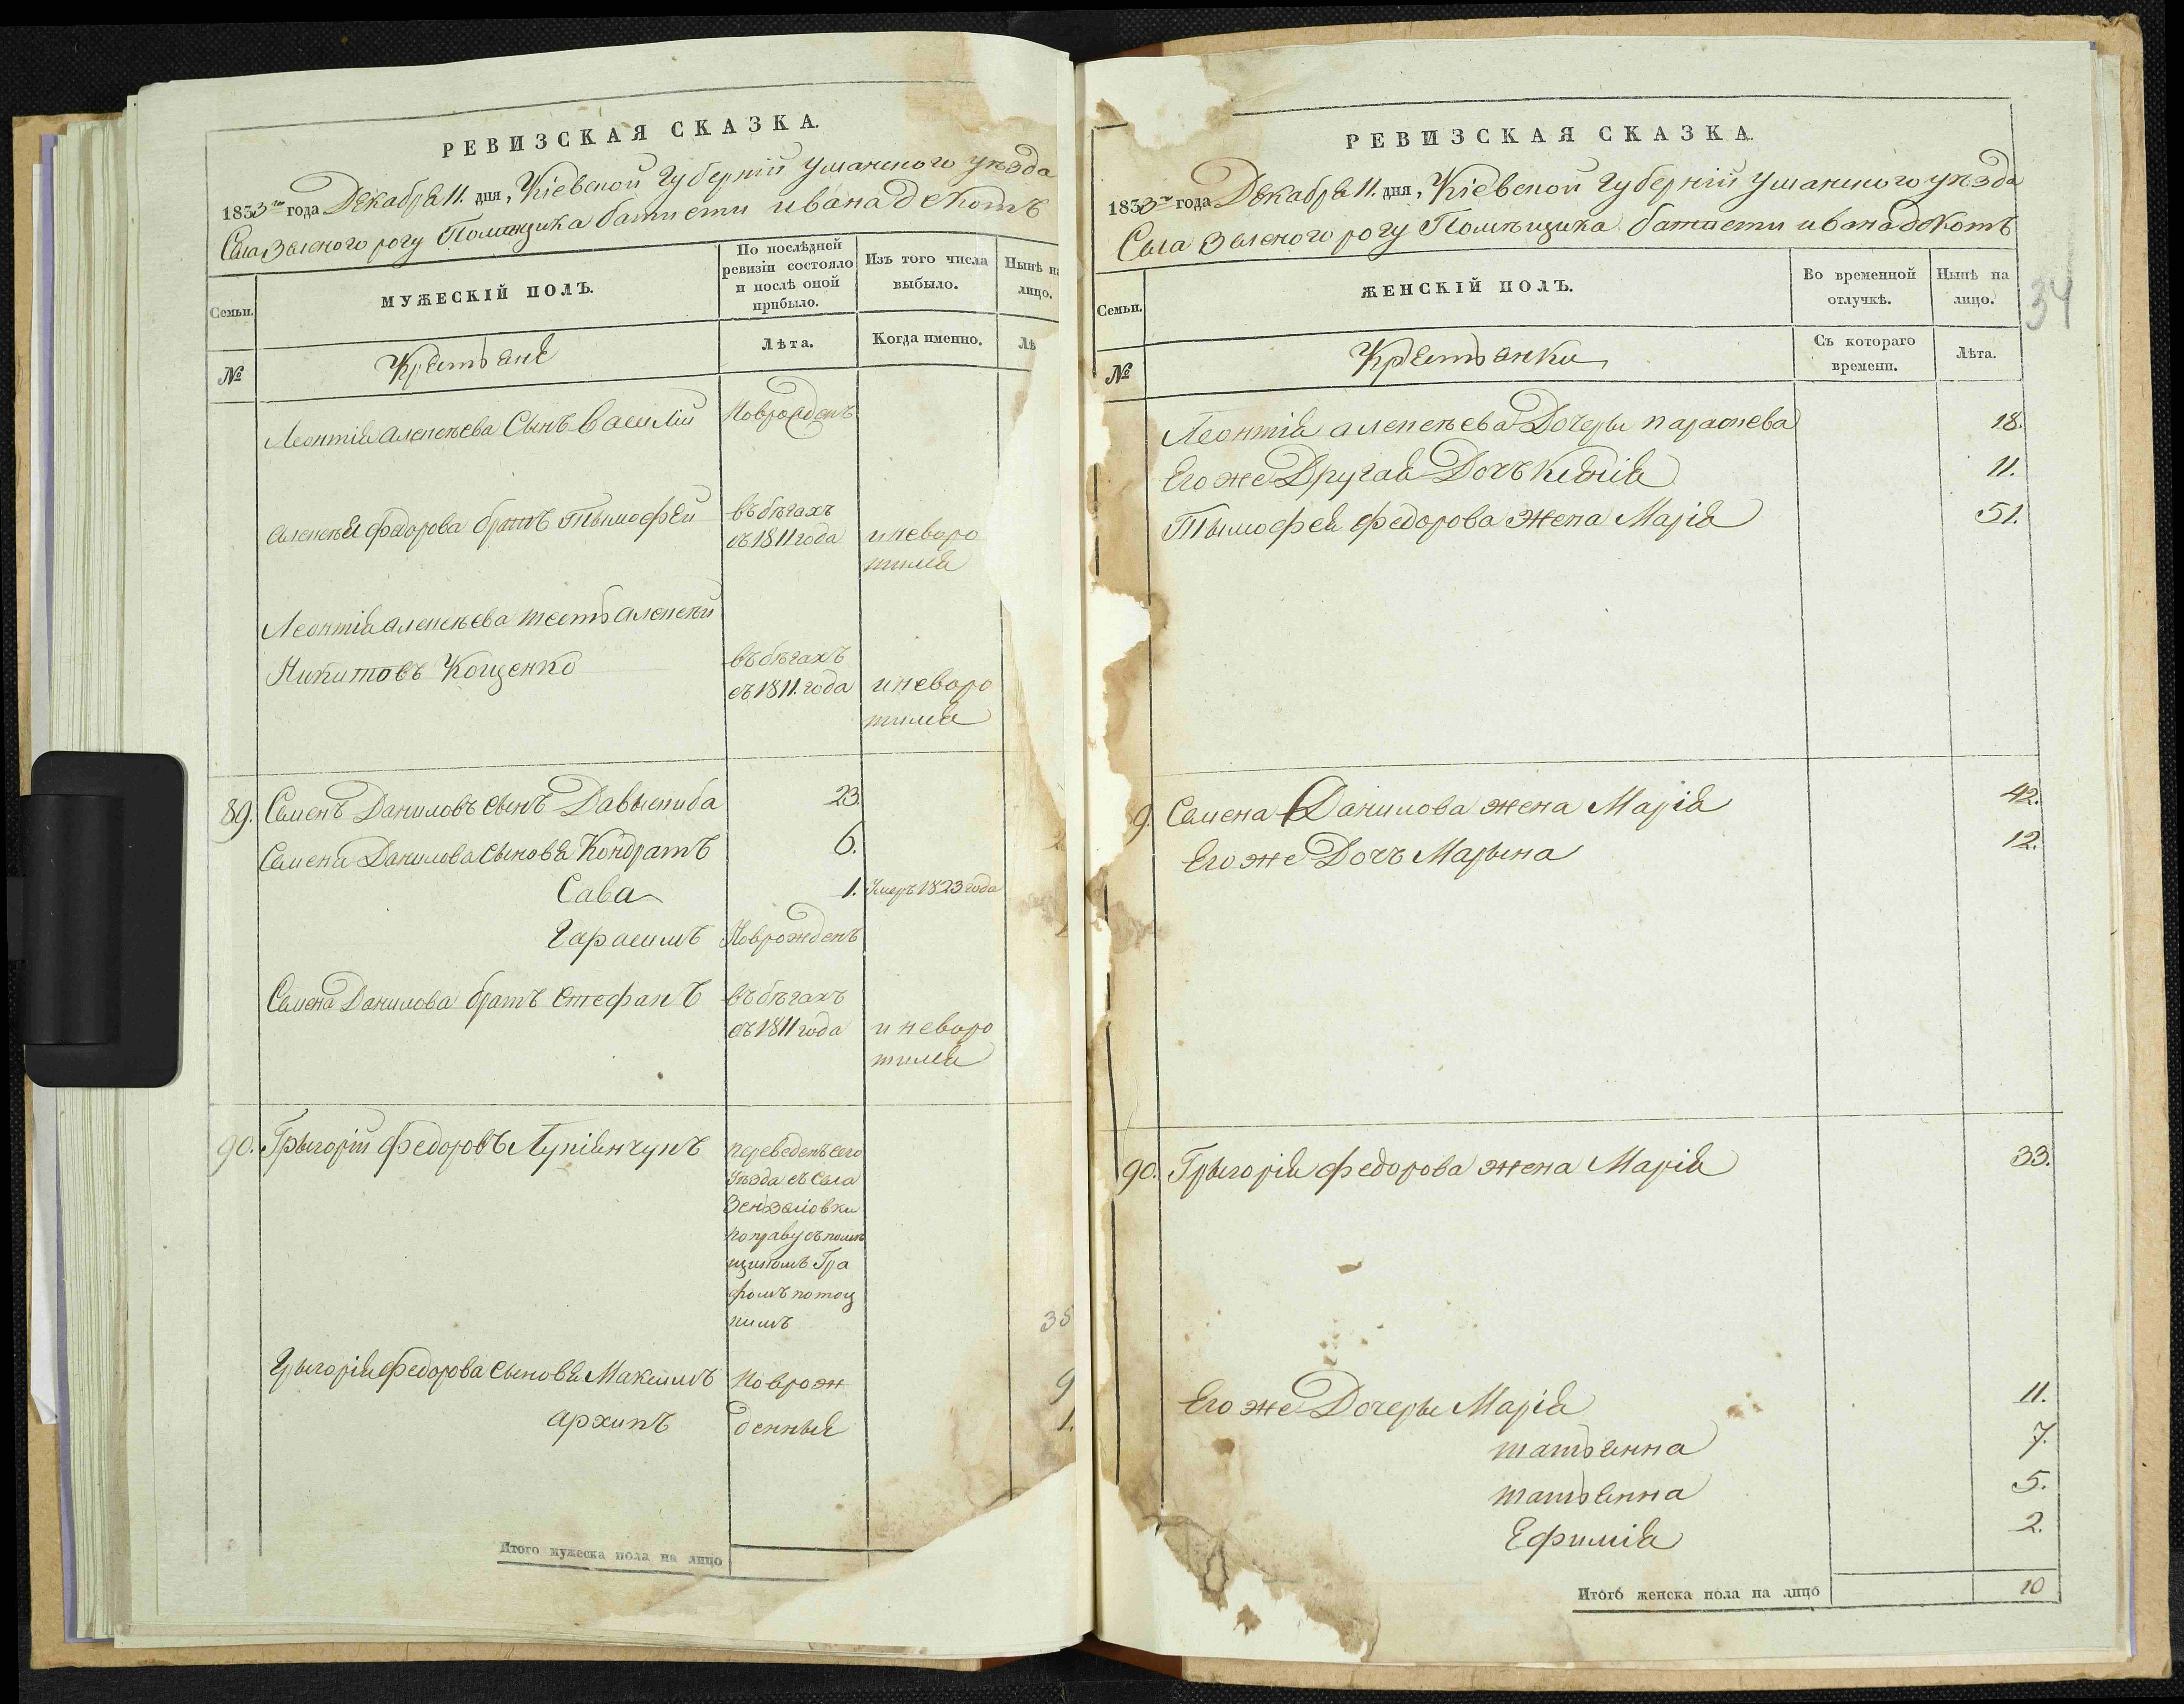 РЕВИЗСКАЯ СКАЗКА.
1833го года Декабря 11. дня, Кіевской Губерніи Уманского уезда
Села Зеленого рогу Помещика батисти ивана декотъ
Семьи.
МУЖЕСКІЙ ПОЛЪ.
По послѣдней ревизіи состояло и послѣ оной прибыло.
Изъ того числа выбыло.
Нынѣ на лицо.
№
Крестьяне
Лѣта.
Когда именно.
Лѣ
Леонтія алексеева Сынъ василійНоврожденъ
алексея федорова братъ Тымофей въ бѣгахъ
съ 1811 года и неворо
тился
Леонтія алексеева тесть алексей
Никитовъ Кощенко въ бѣгахъ
съ 1811. года и неворо
тился
89. Семенъ Даниловъ сынъ Давыскиба 23.
Семена Данилова сыновя Кондратъ 6.
Сава 1. Умеръ 1823 года
Гарасимъ Новрожденъ
Семена Данилова братъ стефанъ въ бѣгахъ
съ 1811 года и неворо
тился
90. Грыгорій федоровъ переведенъ сего
уезда съ села
по праву съ поме
щикомъ Гра
фомъ потоц
кимъ
35
Грыгорія федорова сыновя МаксимъНоврож 9
архипъ денные 1.
Итого мужеска пола на лицо
РЕВИЗСКАЯ СКАЗКА.
34
1833го года Декабря 11. дня, Кіевской Губерніи Уманского уезда
Села Зеленого рогу Помещика батисти ивана декотъ
Семьи.
ЖЕНСКІЙ ПОЛЪ.
Во временной отлучкѣ.
Нынѣ на лицо.
№
Крестьянки
Съ котораго времени.
Лѣта.
Леонтія алексеева Дочеры параскева 18.
Его же Другая Дочъ 11.
Тымофея федорова жена Марія 51.
9. Семена Данилова жена Марія 42.
Его же Дочъ Марына 12.
90. Грыгорія федорова жена Марія 33.
Его же Дочеры Марія 11.
татьянна 7.
татьянна 5.
Ефимія 2.
Итого женска пола на лицо 10